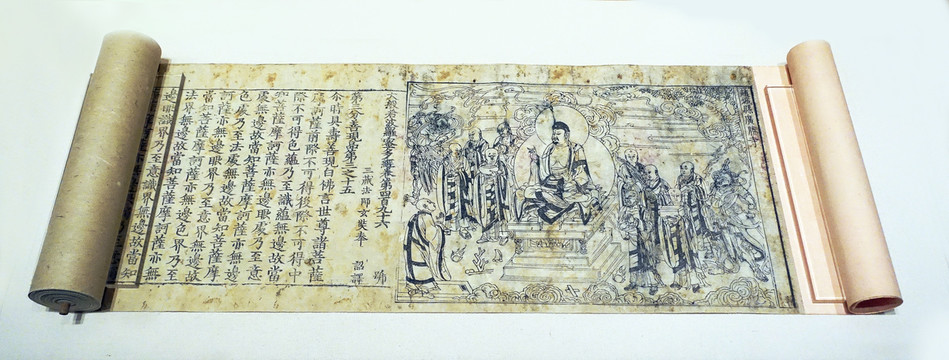 大般若波羅蜜多經卷第四百九十六
鳴
三藏法師玄奘奉 詔譯
第三分善現品第三之十五
尒時具壽善現白佛言世尊諸菩薩
摩訶薩前際不可得後際不可得中
際不可得色蘊乃至識蘊無邊故當
知菩薩摩訶薩亦無邊眼處乃至意
處無邊故當知菩薩摩訶薩亦無邊
色處乃至法處無邊故當知菩薩摩
訶薩亦無邊眼界乃至意界無邊故
當知菩薩摩訶薩亦無邊色界乃至
法界無邊故當知菩薩摩訶薩亦無
邊眼識界乃至意識界無邊故當知